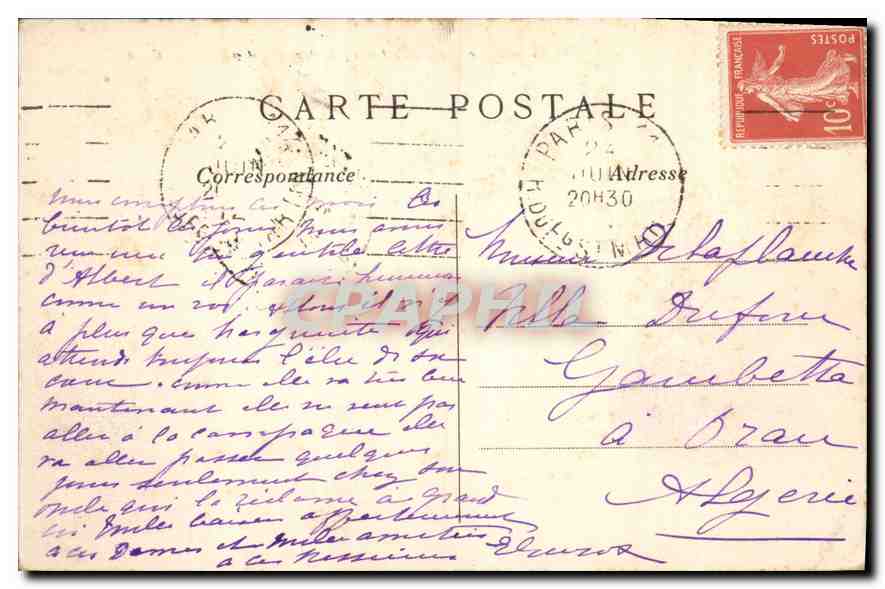 CARTE POSTALE
Correspondance
Adresse
REPUBLIQUE FRANÇAISE
POSTES
10c
PARIS
24
JUIN
20H30
CPAPHIL
Nous comptons les
bientôt les jours nous avons
gentille lettre
d'Albert il parait heureux
comme un roi. Alors il n'y
a plus que Marguerite qui
attend toujours l'élu de son
cœur. comme elle va très bien
maintenant elle ne veut pas
aller à la campagne elle
va aller passer quelques
jours seulement chez son
oncle qui la réclame à grand
cri Mille baisers
à ces Dames et mille amitiés
à ces messieurs
Monsieur Delaplanche
Villa Dufour
Gambetta
à Oran
Algerie